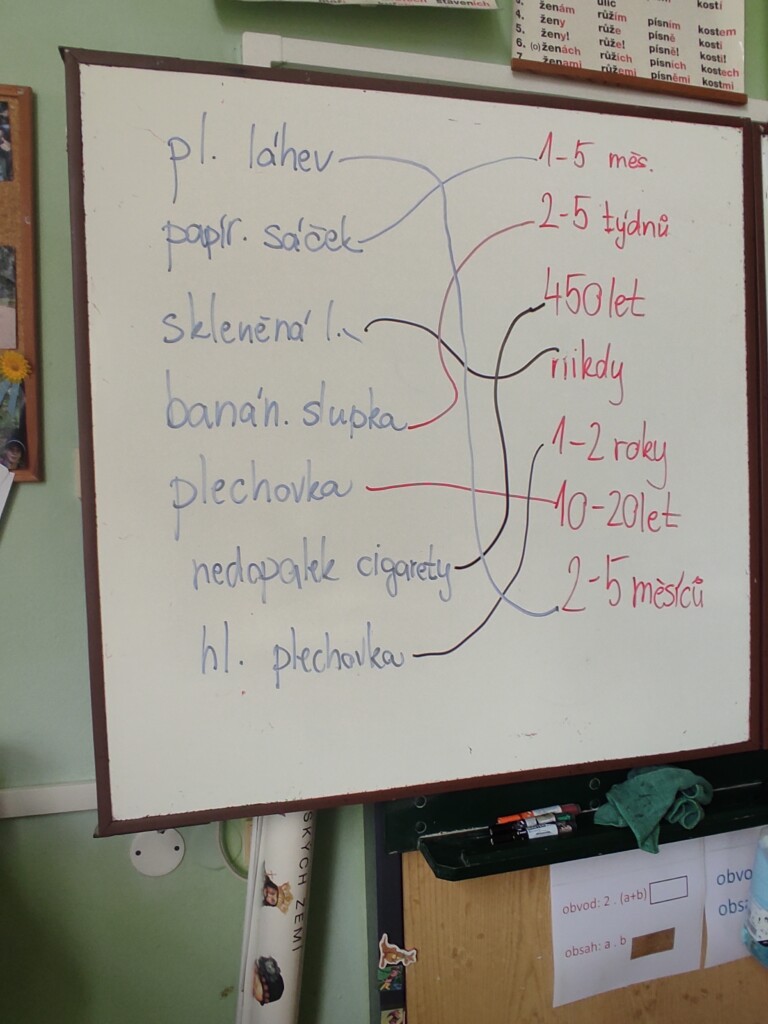 ženám růžím písním kostem
4. ženy růže písně kosti
5. ženy! růže! písně! kosti!
6. (o) ženách růžích písních kostech
7. ženami růžemi písněmi kostmi
pl. láhev 1-5 měs.
papír. sáček 2-5 týdnů
skleněná l. 450 let
banán. slupka nikdy
plechovka 1-2 roky
nedopalek cigarety 10-20 let
hl. plechovka 2-5 měsíců
SKÝCH ZEMÍ
obvod: 2 . (a+b)
obsah: a . b
obvo
obs